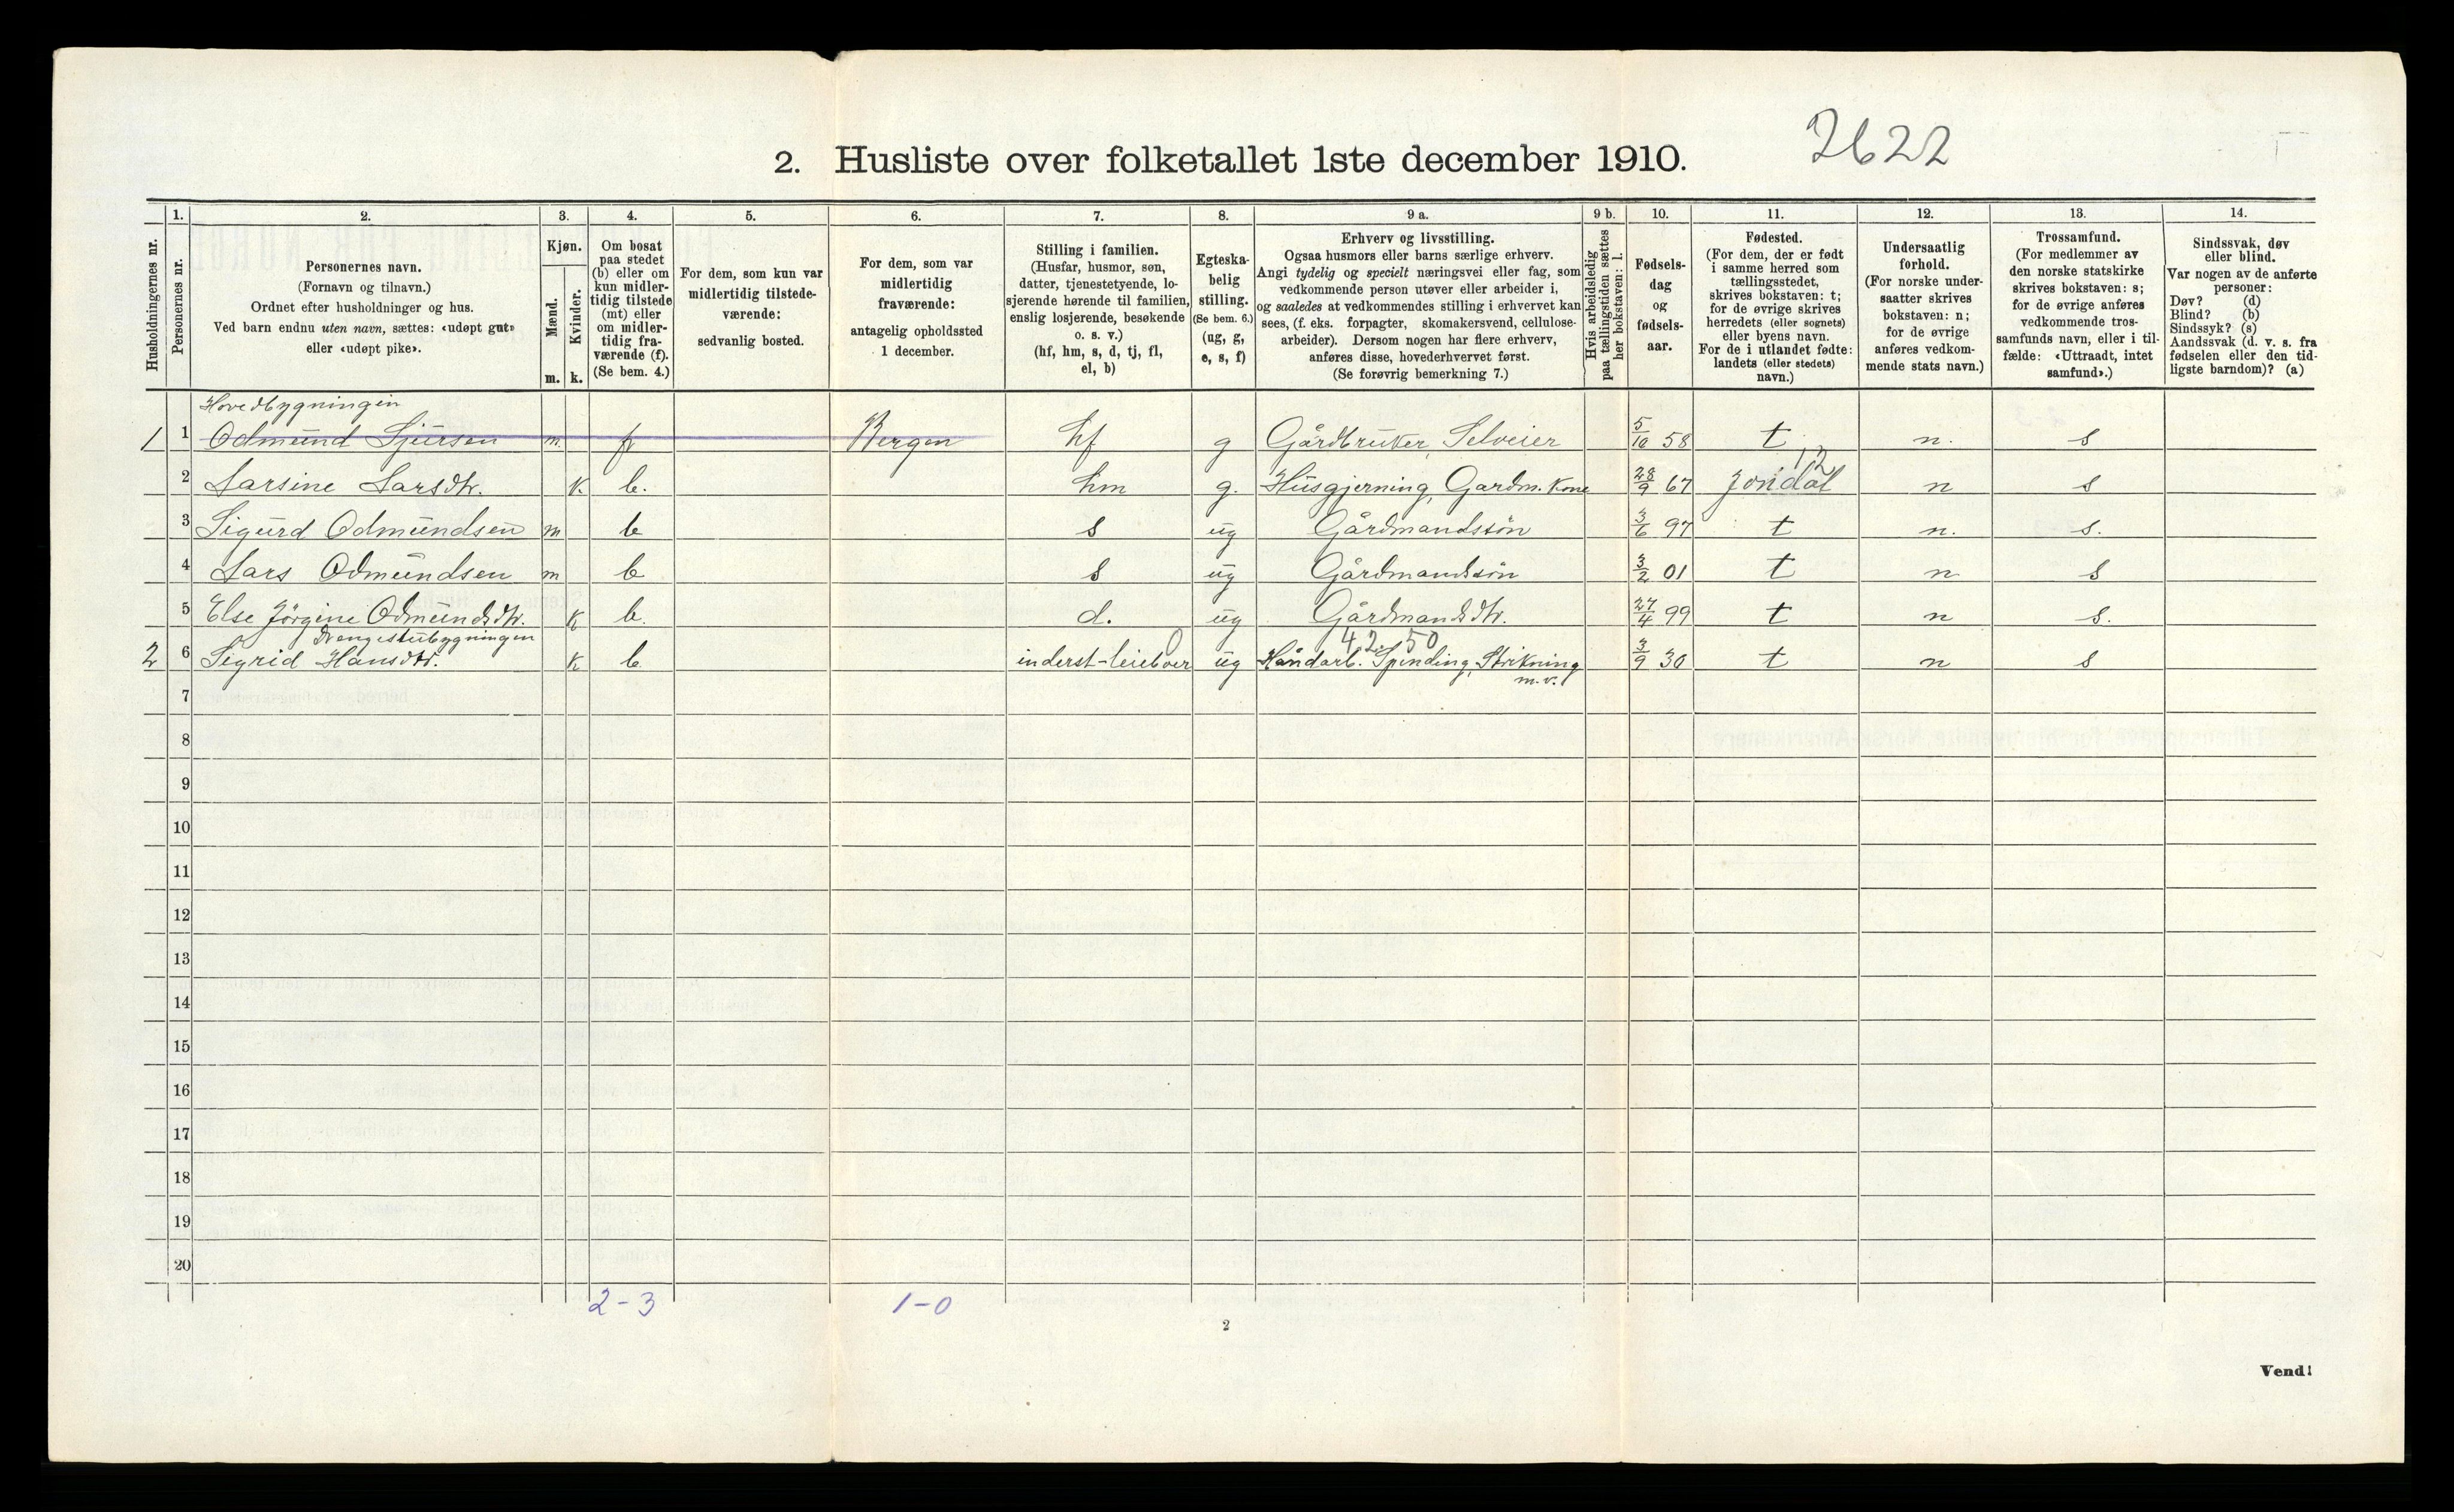 2622
2. Husliste over folketallet 1ste december 1910.
Husholdningernes nr.
1.
Personernes nr.
2.
Personernes navn.
(Fornavn og tilnavn.)
Ordnet efter husholdninger og hus.
Ved barn endnu uten navn, sættes: «udøpt gut»
eller «udøpt pike».
3.
Kjøn.
Mænd.
Kvinder.
m. k.
4.
Om bosat
paa stedet
(b) eller om
kun midler-
tidig tilstede
(mt) eller
om midler-
tidig fra-
værende (f).
(Se bem. 4.)
5.
For dem, som kun var
midlertidig tilstede-
værende:
sedvanlig bosted.
6.
For dem, som var
midlertidig
fraværende:
antagelig opholdssted
1 december.
7.
Stilling i familien.
(Husfar, husmor, søn,
datter, tjenestetyende, lo-
sjerende hørende til familien,
enslig losjerende, besøkende
o. s. v.)
(hf, hm, s, d, tj, fl,
el, b)
8.
Egteska-
belig
stilling.
(Se bem. 6.)
(ug, g,
e, s, f)
9 a.
Erhverv og livsstilling.
Ogsaa husmors eller barns særlige erhverv.
Angi tydelig og specielt næringsvei eller fag, som
vedkommende person utøver eller arbeider i,
og saaledes at vedkommendes stilling i erhvervet kan
sees, (f. eks. forpagter, skomakersvend, cellulose-
arbeider). Dersom nogen har flere erhverv,
anføres disse, hovederhvervet først.
(Se forøvrig bemerkning 7.)
9 b.
Hvis arbeidsledig
paa tællingstiden sættes
her bokstaven: l.
10.
Fødsels-
dag
og
fødsels-
aar.
11.
Fødested.
(For dem, der er født
i samme herred som
tællingsstedet,
skrives bokstaven: t;
for de øvrige skrives
herredets (eller sognets)
eller byens navn.
For de i utlandet fødte:
landets (eller stedets)
navn.)
12.
Undersaatlig
forhold.
(For norske under-
saatter skrives
bokstaven: n;
for de øvrige
anføres vedkom-
mende stats navn.)
13.
Trossamfund.
(For medlemmer av
den norske statskirke
skrives bokstaven: s;
for de øvrige anføres
vedkommende tros-
samfunds navn, eller i til-
fælde: «Uttraadt, intet
samfund».)
14.
Sindssvak, døv
eller blind.
Var nogen av de anførte
personer:
Døv? (d)
Blind? (b)
Sindssyk? (s)
Aandssvak (d. v. s. fra
fødselen eller den tid-
ligste barndom)? (a)
Hovedbygningen
1 1 Odmund Sjursen m. f Bergen hf g Gårdbruker, Selveier 5/10 58 t n. s
12
2 Larsine Larsdtr. k. b. hm g. Husgjerning, Gardm. kone 28/9 67 Jondal n s
3 Sigurd Odmundsen m b s ug Gårdmandssøn 3/6 97 t n. s.
4 Lars Odmundsen m b s ug Gårdmandssøn 3/2 01 t n s
5 Else Jörgine Odmundsdtr. k b. d. ug Gårdmandsdtr. 27/4 99 t n s.
Drengestubygningen 0 42.50
2 6 Sigrid Hansdtr. k b inderst-leieboer ug Håndarb. Spinding, Strikning 3/9 30 t n s
m.v.
7
8
9
10
11
12
13
14
15
16
17
18
19
20
2-3 1-0
2
Vend!